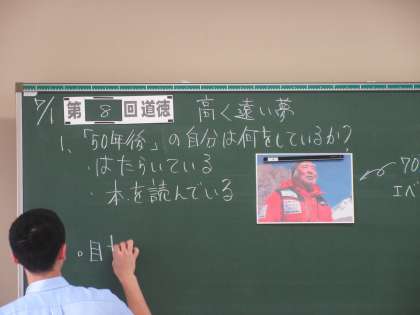 7/1 第8回道徳 高く遠い夢
1、「50年後」の自分は何をしているか?
・はたらいている
・本を読んでいる
70
エベ
○目